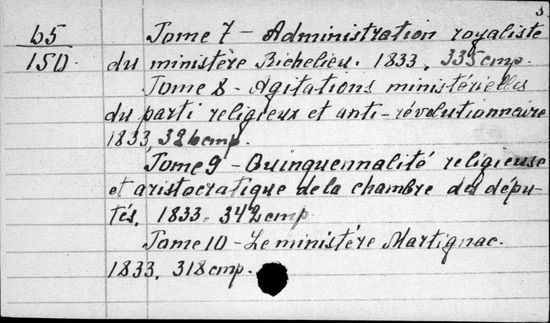 3
65 Tome 7 - Administration royaliste
150. du ministère Richelieu. 1833. 335 стр.
Tome 8 - Agitations ministérielles
du parti religieux et anti-révolutionnaire
1833, 326 стр.
Tome 9 - Quinquennalité religieuse
et aristocratique de la chambre des dépu-
tés. 1833. 342 стр
Tome 10 - Le ministére Martignac.
1833. 318 стр.